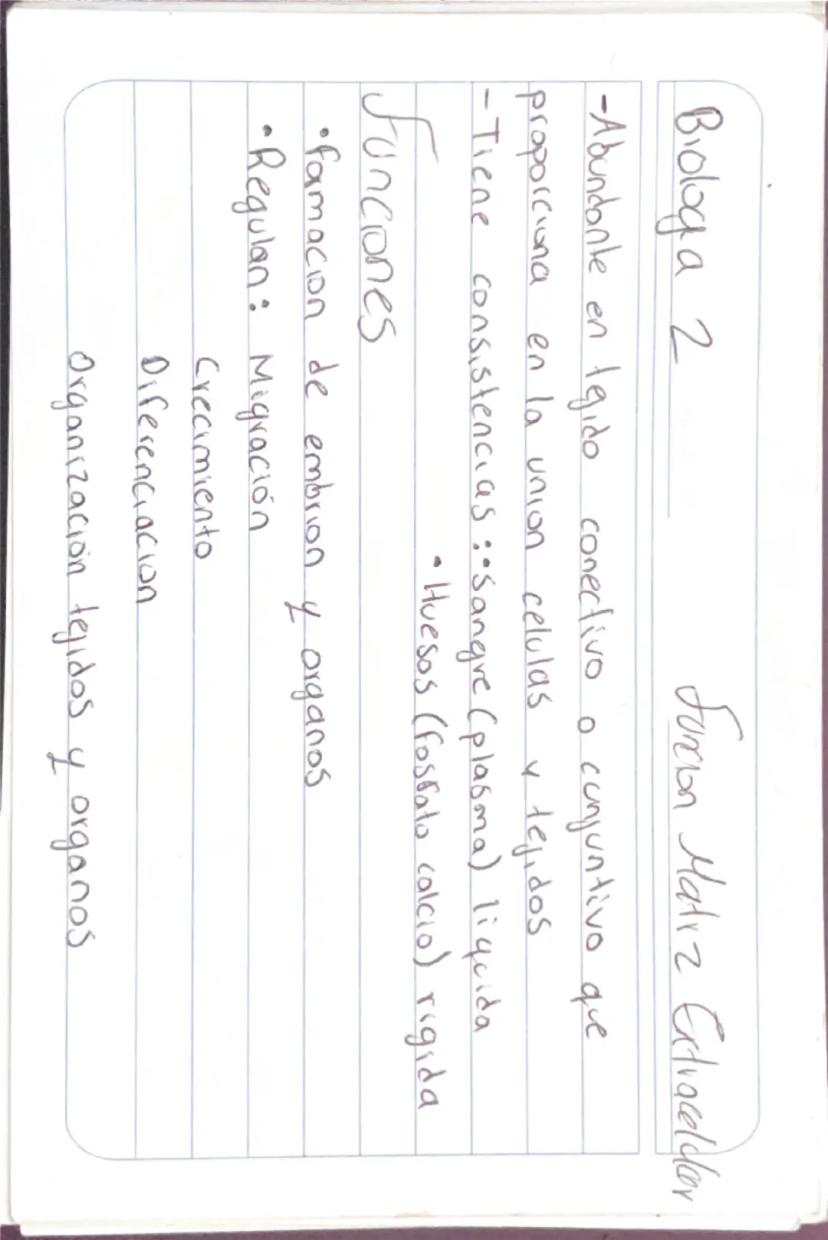 Biologia 2 Funcion Matriz Extracelular
- Abundante en tejido conectivo o conjuntivo que
proporciona en la union celulas y tejidos
- Tiene consistencias: • Sangre (plasma) liquida
• Huesos (fosfato calcio) rigida
Funciones
• Formacion de embrion y organos
• Regulan: Migración
Crecimiento
Diferenciacion
Organización tejidos y organos